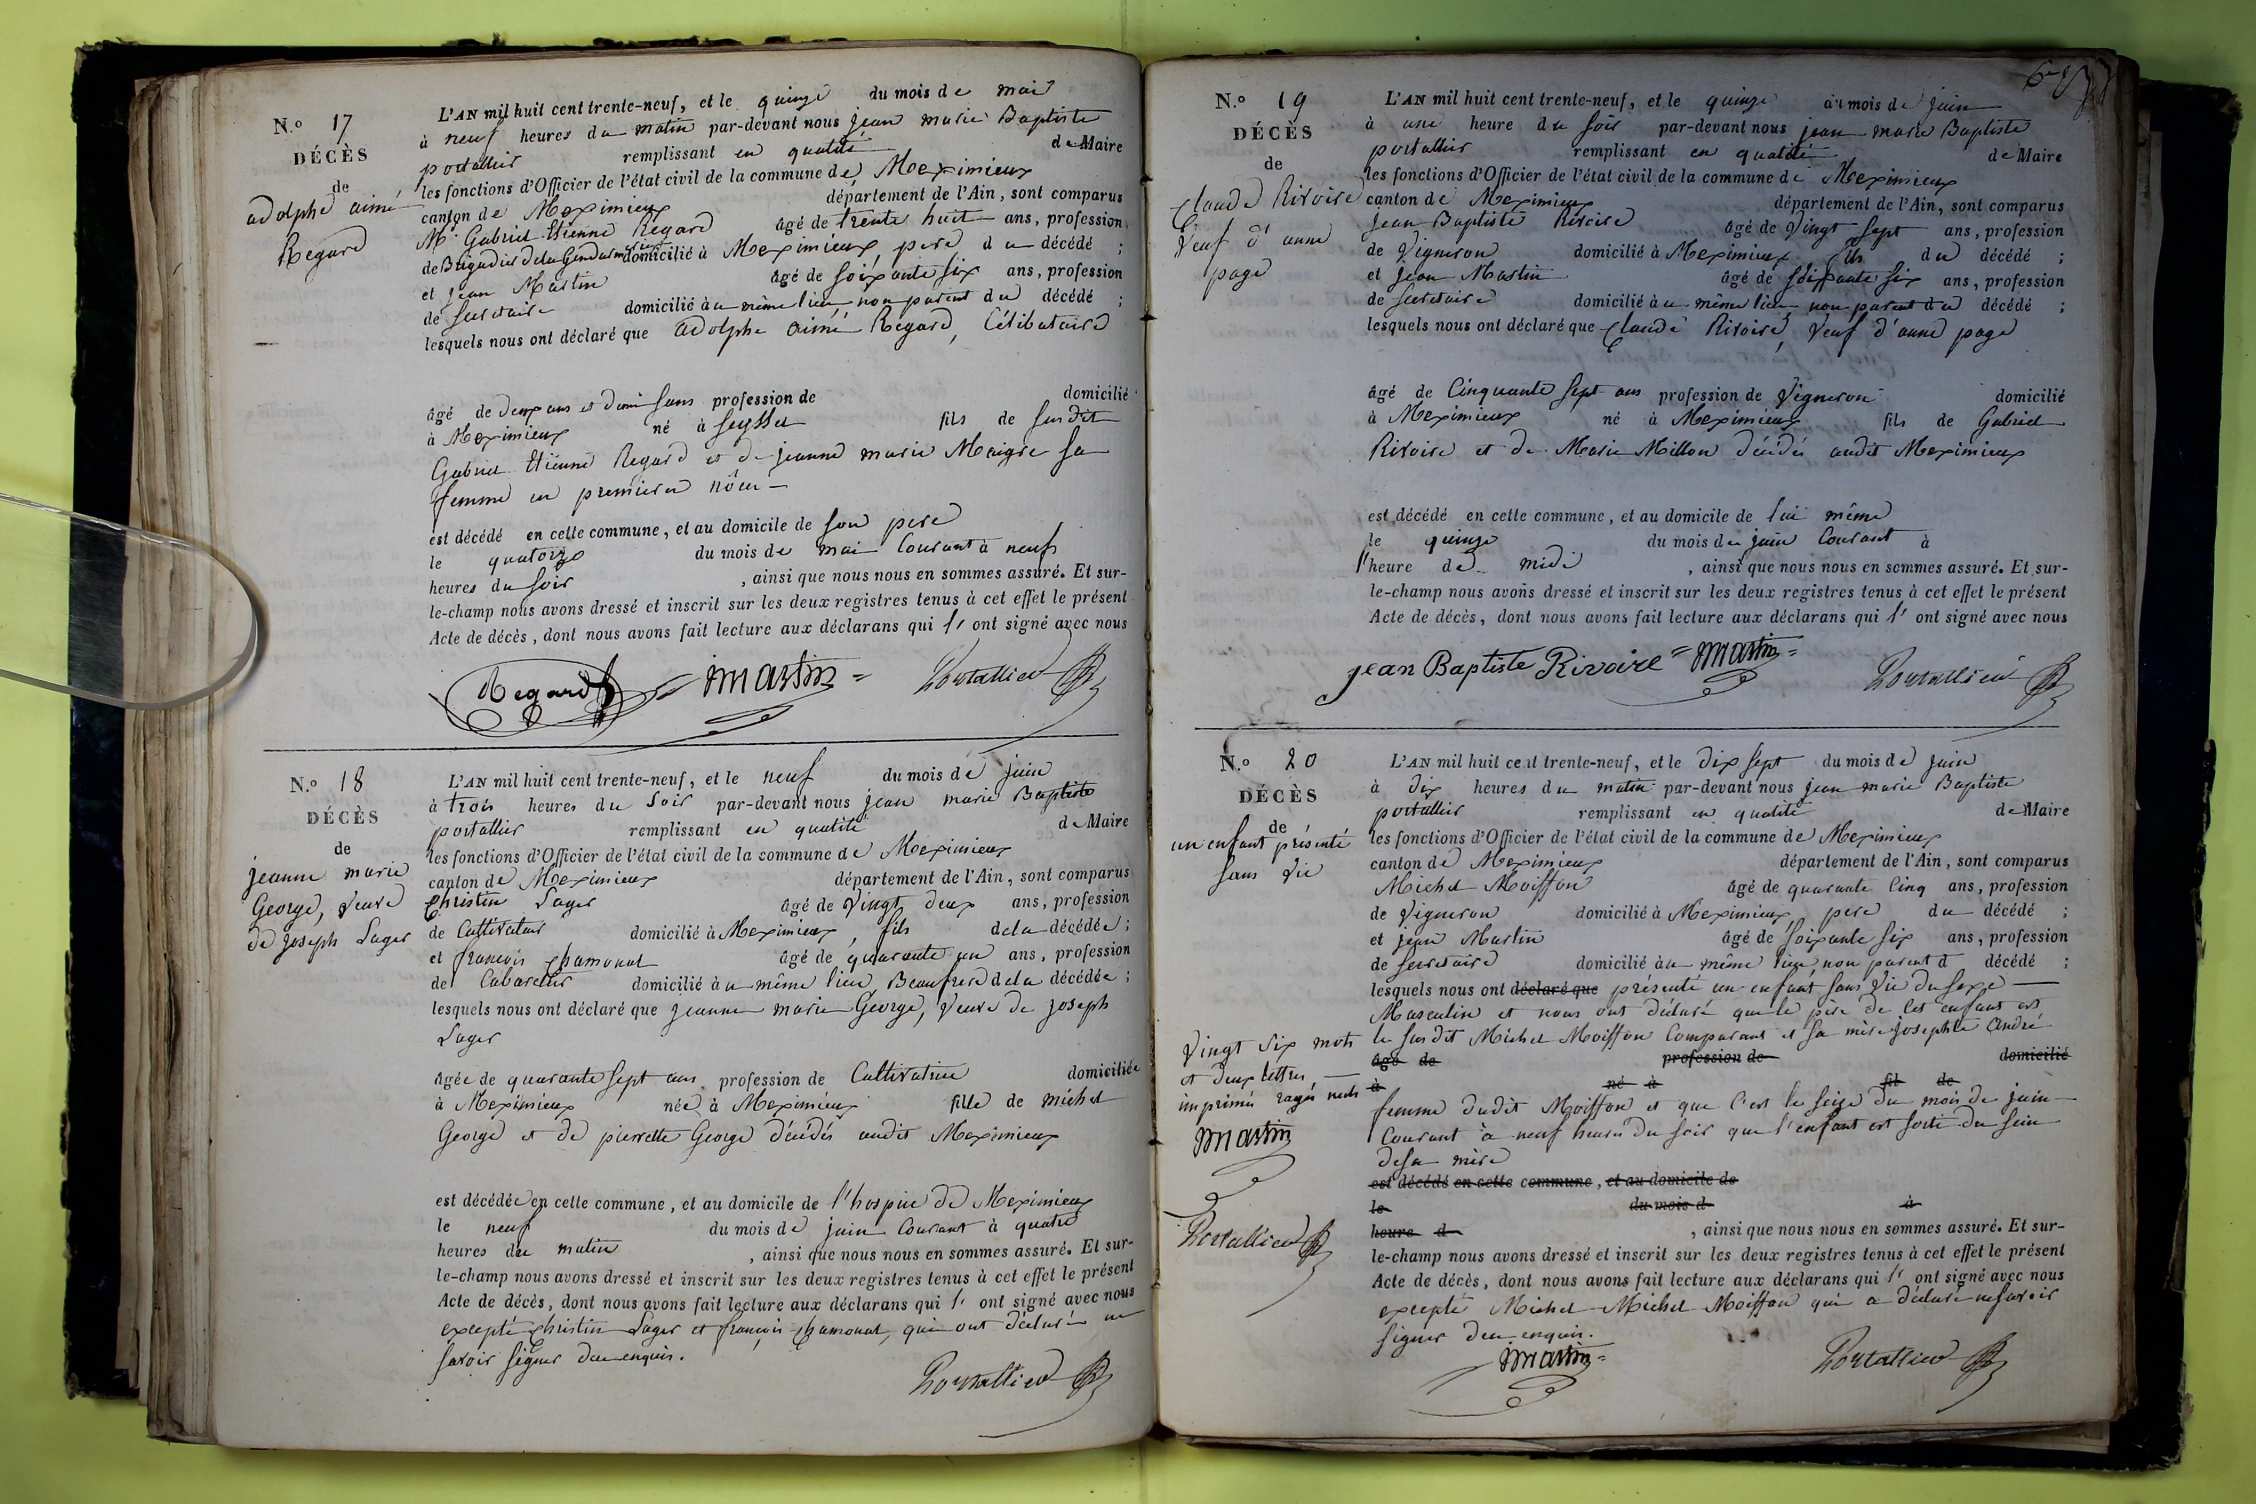 N.° 17
DÉCÈS
de
adolphe aimé
Regard
L'AN mil huit cent trente-neuf, et le quinze du mois de mai
à neuf heures du matin par-devant nous jean marie Baptiste
portallier remplissant en qualité de Maire
les fonctions d'Officier de l'état civil de la commune de Meximieux
canton de Meximieux département de l'Ain, sont comparus
Mr Gabriel Etienne Regard âgé de trente huit ans, profession
de Brigadier de la Gendarmerie domicilié à Meximieux pere du décédé ;
et jean Martin âgé de soixante six ans, profession
de Secretaire domicilié au même lieu, non parent du décédé ;
lesquels nous ont déclaré que adolphe aimé Regard, Célibataire
âgé de deux ans et demi sans profession de domicilié
à Meximieux né à Seyssel fils de susdit
Gabriel Etienne Regard et de jeanne marie Maigre sa
femme en premieres nôces —
est décédé en cette commune, et au domicile de son pere
le quatorze du mois de mai Courant à neufs
heures du soir , ainsi que nous nous en sommes assuré. Et sur-
le-champ nous avons dressé et inscrit sur les deux registres tenus à cet effet le présent
Acte de décès, dont nous avons fait lecture aux déclarans qui l' ont signé avec nous
Regard Martin = Portallier
N.° 18
DÉCÈS
de
jeanne marie
George, veuve
de joseph Lager
L'AN mil huit cent trente-neuf, et le neuf du mois de juin
à trois heures du soir par-devant nous jean marie Baptiste
portallier remplissant en qualité de Maire
les fonctions d'Officier de l'état civil de la commune de Meximieux
canton de Meximieux département de l'Ain, sont comparus
Christin Lager âgé de vingt deux ans, profession
de Cultivateur domicilié à Meximieux, fils de la décédée ;
et françois chamonal âgé de quarante un ans, profession
de Cabaretier domicilié au même lieu, Beaufrere de la décédée ;
lesquels nous ont déclaré que jeanne marie George, veuve de joseph
Lager
âgée de quarante sept ans profession de Cultivatrice domiciliée
à Meximieux née à Meximieux fille de michel
George et de pierrette George décédés audit Meximieux
est décédée en cette commune, et au domicile de l'hospice de Meximieux
le neuf du mois de juin Courant à quatre
heures du matin , ainsi que nous nous en sommes assuré. Et sur-
le-champ nous avons dressé et inscrit sur les deux registres tenus à cet effet le présent
Acte de décès, dont nous avons fait lecture aux déclarans qui l' ont signé avec nous
excepté christin Lager et françois chamonal, qui ont déclaré ne
savoir signer de ce enquis.
Portallier
N.° 19
DÉCÈS
de
Claude Rivoire
Veuf d'anne
page
L'AN mil huit cent trente-neuf, et le quinze du mois de juin
à une heure du soir par-devant nous jean marie Baptiste
portallier remplissant en qualité de Maire
les fonctions d'Officier de l'état civil de la commune de Meximieux
canton de Meximieux département de l'Ain, sont comparus
jean Baptiste Rivoire âgé de vingt sept ans, profession
de Vigneron domicilié à Meximieux fils du décédé ;
et jean Martin âgé de soixante six ans, profession
de Secretaire domicilié au même lieu, non parent du décédé ;
lesquels nous ont déclaré que Claude Rivoire, veuf d'anne page
âgé de Cinquante sept ans profession de Vigneron domicilié
à Meximieux né à Meximieux fils de Gabriel
Rivoire et de Marie Millon décédés audit Meximieux
est décédé en cette commune, et au domicile de lui même
le quinze du mois de juin Courant à
l'heure de midi , ainsi que nous nous en sommes assuré. Et sur-
le-champ nous avons dressé et inscrit sur les deux registres tenus à cet effet le présent
Acte de décès, dont nous avons fait lecture aux déclarans qui l' ont signé avec nous
jean Baptiste Rivoire = Martin = Portallier
N.° 20
DÉCÈS
de
un enfant présenté
sans vie
L'AN mil huit cent trente-neuf, et le dix sept du mois de juin
à dix heures du matin par-devant nous jean marie Baptiste
portallier remplissant en qualité de Maire
les fonctions d'Officier de l'état civil de la commune de Meximieux
canton de Meximieux département de l'Ain, sont comparus
Michel Moiffon âgé de quarante Cinq ans, profession
de Vigneron domicilié à Meximieux, pere du décédé ;
et jean Martin âgé de soixante six ans, profession
de secretaire domicilié au même lieu, non parent d décédé ;
lesquels nous ont déclaré que présenté un enfant sans vie du sexe —
Masculin et nous ont déclaré que le père de cet enfant est
le susdit Michel Moiffon Comparant et sa mère josephte André
âgé de profession de domicilié
à né à fil de
femme dudit Moiffon et que c'est le seize du mois de juin
Courant à neuf heures du soir que l'enfant est sorti du sein
de sa mère
est décédé en cette commune, et au domicile de
le du mois d à
heure d , ainsi que nous nous en sommes assuré. Et sur-
le-champ nous avons dressé et inscrit sur les deux registres tenus à cet effet le présent
Acte de décès, dont nous avons fait lecture aux déclarans qui l' ont signé avec nous
excepté Michel Michel Moiffon qui a déclaré ne savoir
signer de ce enquis.
Martin = Portallier
Vingt six mots
et deux lettres
imprimés rayés nuls
Martin
Portallier